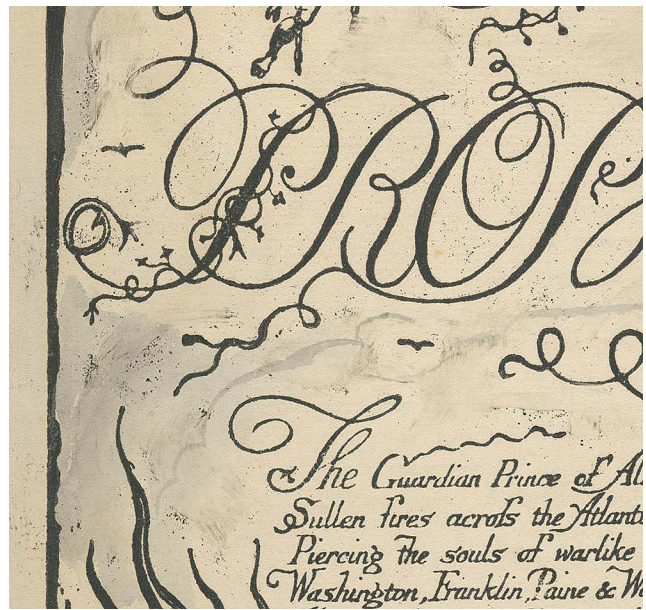 PROP
The Guardian Prince of Al
Sullen fires acroſs the Atlant
Piercing the souls of warlike
Washington, Franklin, Paine & Wa